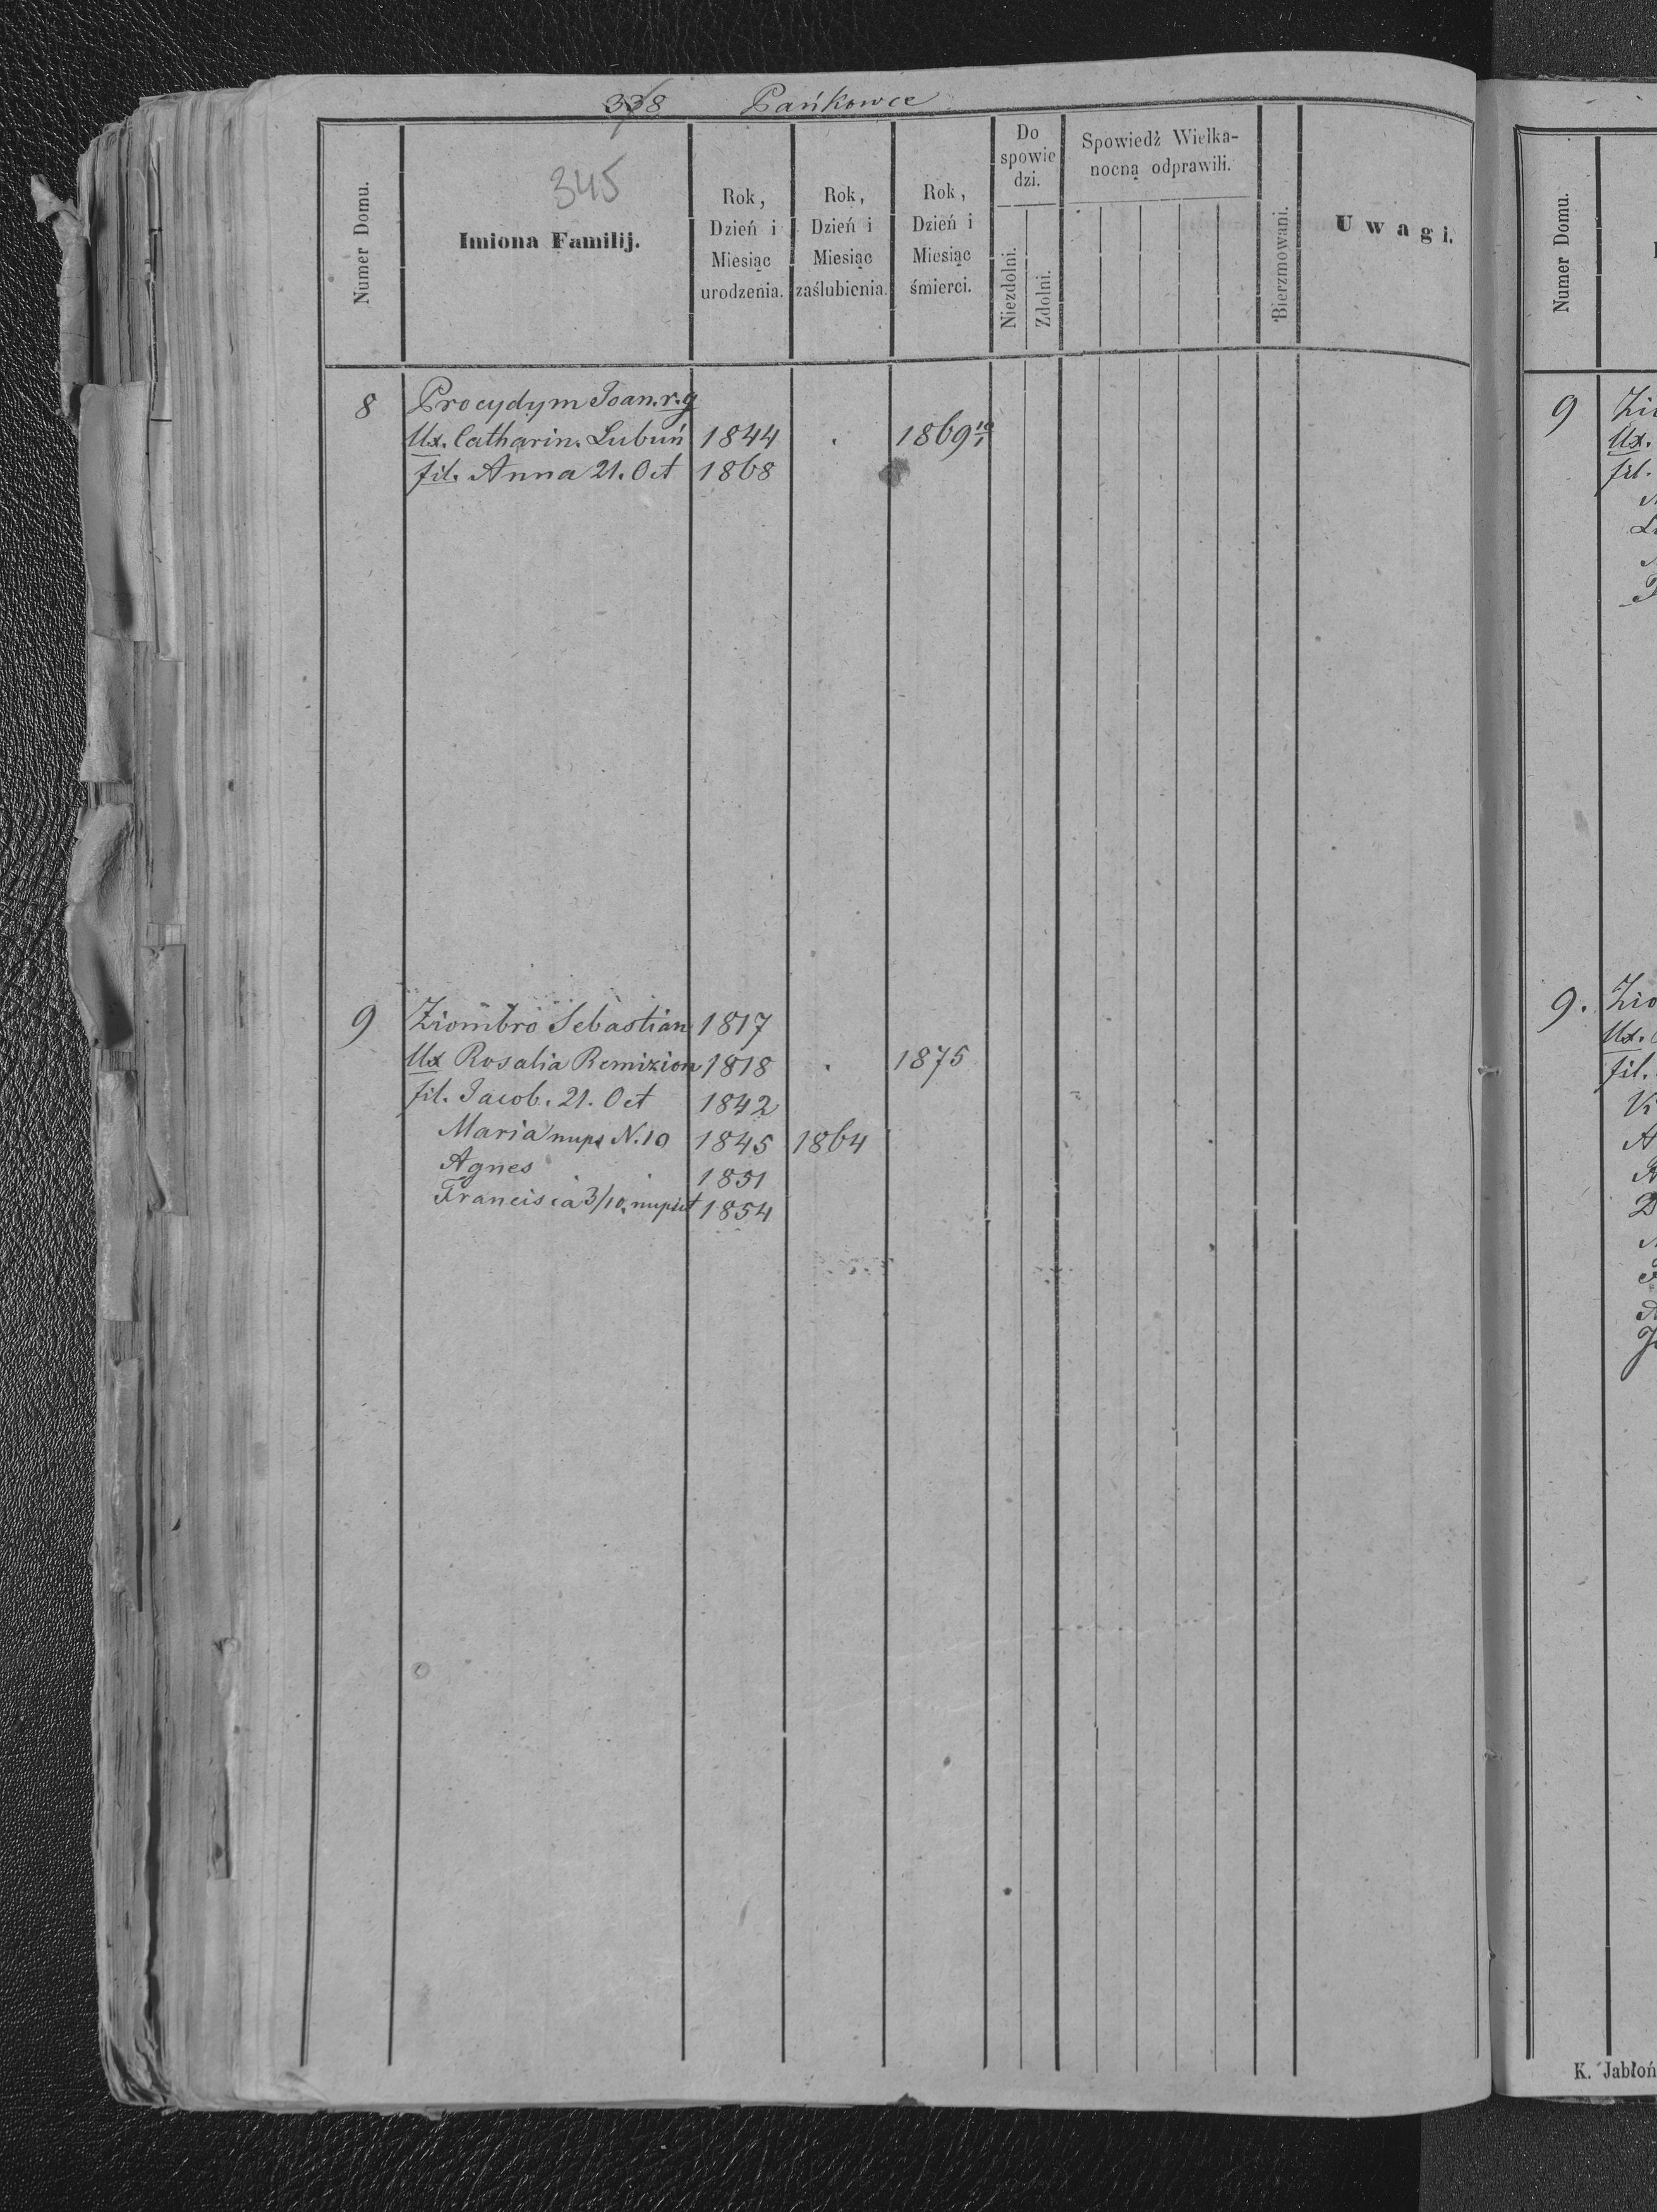 338 Pańkowce
345
Numer Domu.
Imiona Familij.
Rok, Dzień i Miesiąc urodzenia.
Rok, Dzień i Miesiąc zaślubienia.
Rok, Dzień i Miesiąc śmierci.
Do spowie dzi.
Niezdolni.
Zdolni.
Spowiedź Wielka-
nocną odprawili.
Bierzmowani.
Uwagi.
8 Procydym Joan. r. g
Ux. Catharin. Lubuń 1844 . 1869 19/1
fil. Anna 21. Oct 1868
9 Ziombro Sebastian 1817
Ux Rosalia Remizion 1818 . 1875
fil. Jacob. 21. Oct 1842
Maria nups N. 10 1845 1864
Agnes 1851
Francisca 3/10 1854
Numer Domu.
9
Ux.
fil.
9. Zio
Ux.
fil.
K. Jabłoń